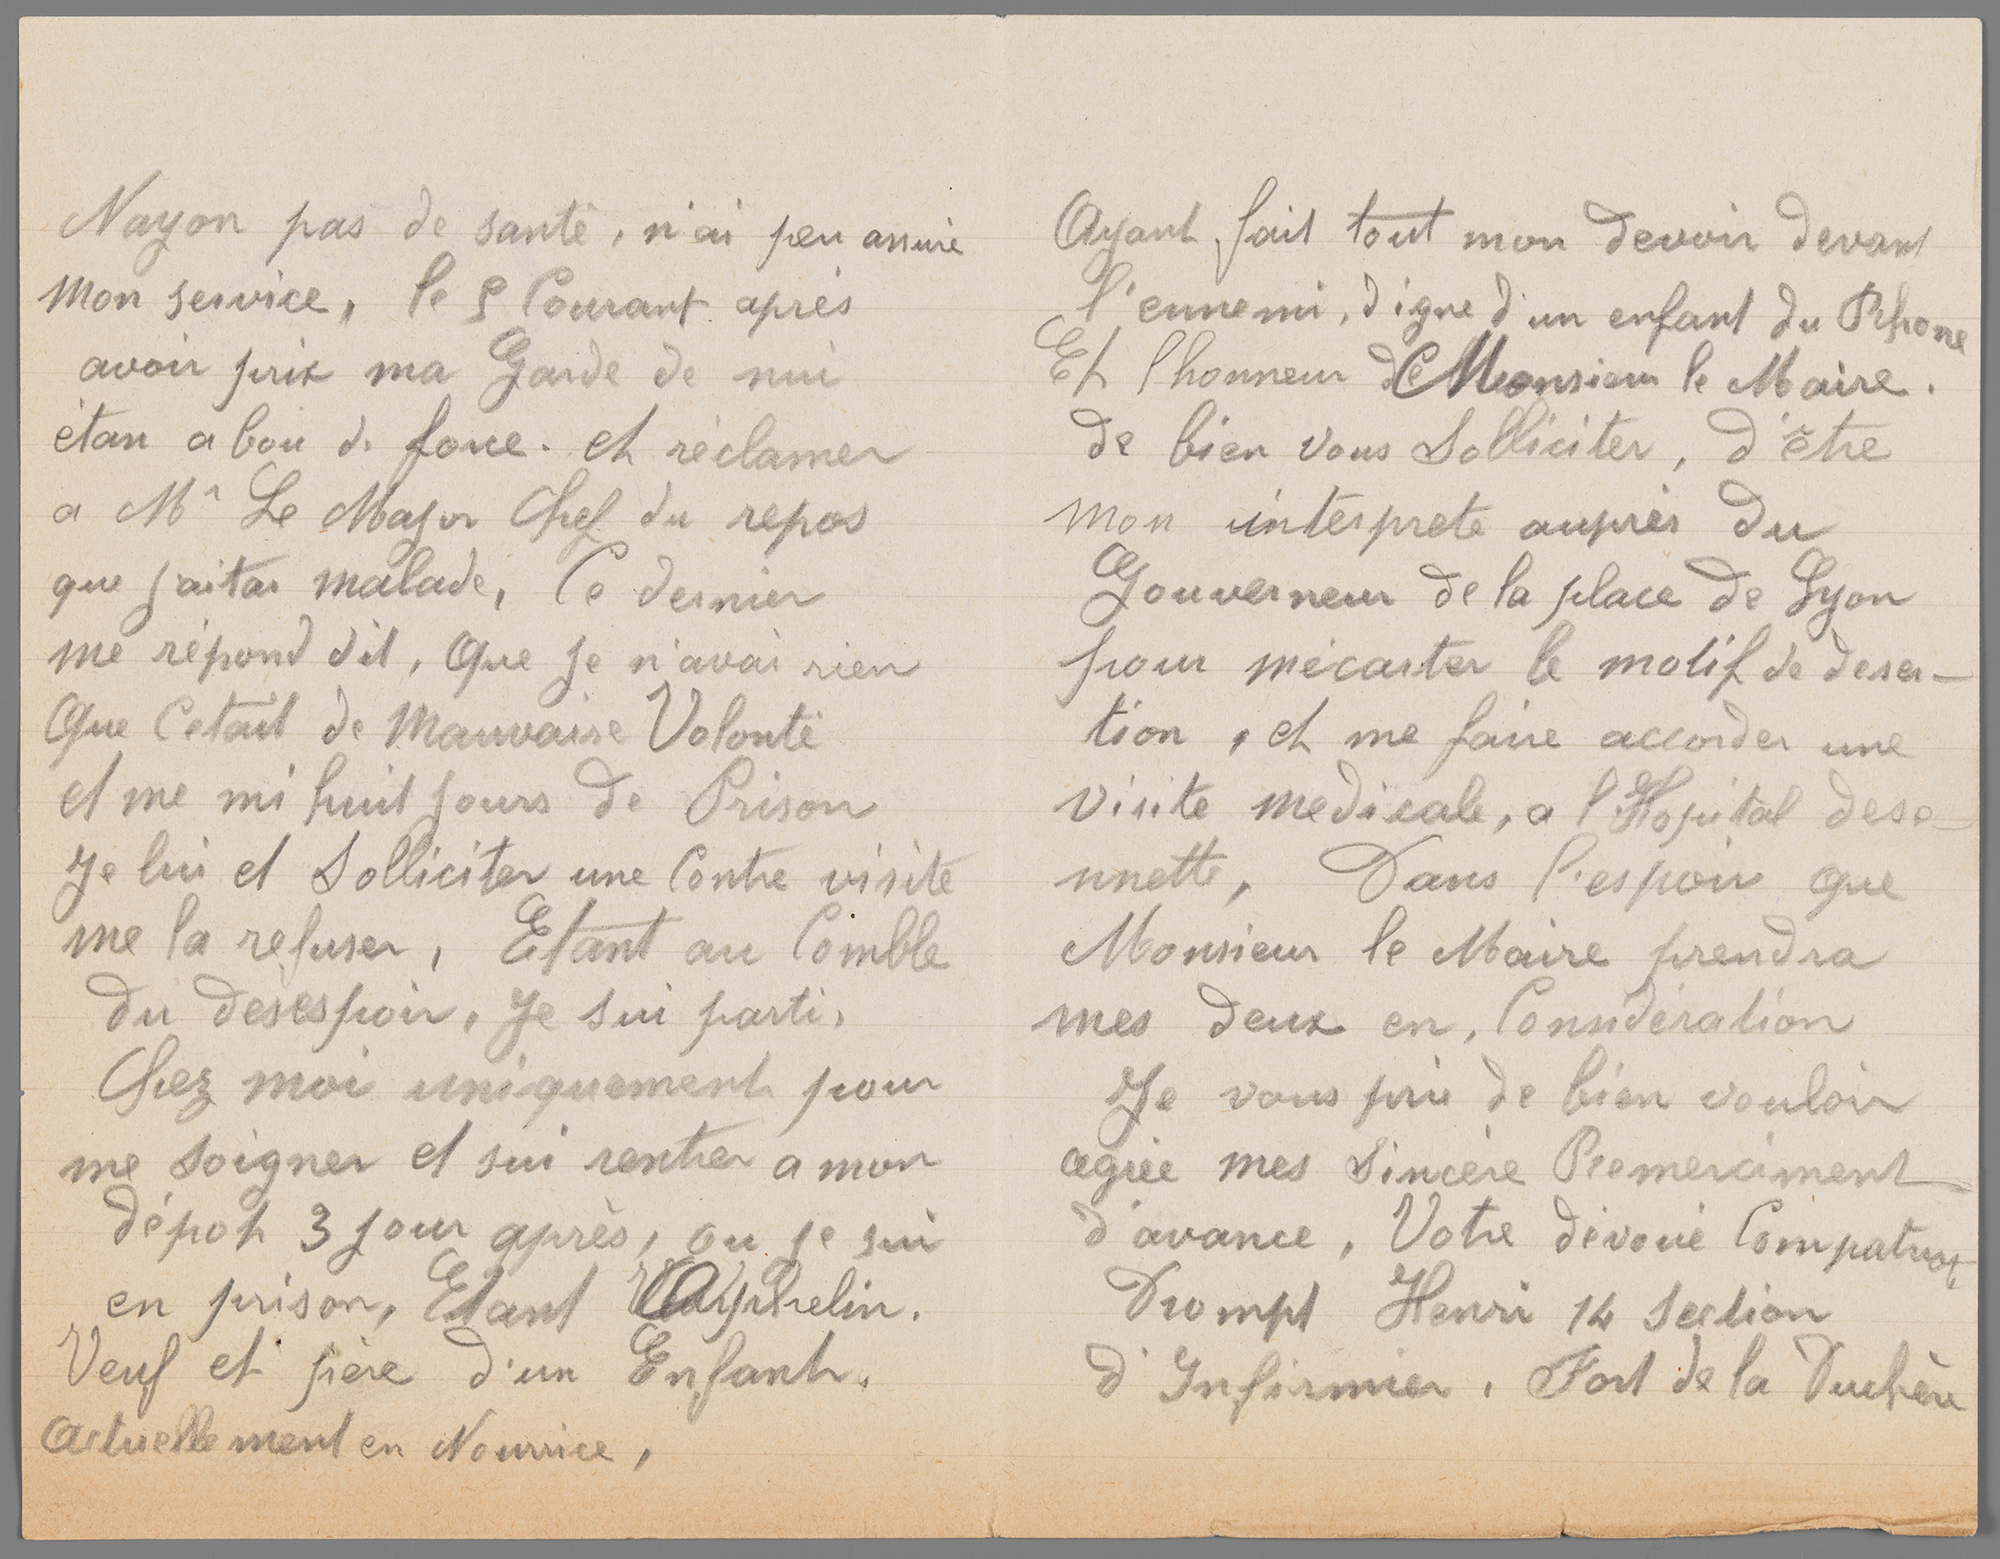 Nayon pas de santé, n'ai peu assuré
mon service, le 5 Courant après
avoir prix ma Garde de nui
étan a bou de force. et réclamer
a Mr Le Major Chef du repos
que jaitai malade, Ce dernier
me répond dit, Que je n'avai rien
Que Cetait de Mauvaise Volonté
et me mi huit jours de Prison
Je lui et Solliciter une Contre visite
me la refuser, Etant au Comble
du desespoir, Je sui parti,
Chez moi uniquement pour
me soigner et sui rentrer a mon
dépot 3 jour après, ou je sui
en prison, Etant Orphelin.
Veuf et père d'un Enfant,
Actuellement en Nourrice,
Ayant fait tout mon devoir devant
l'ennemi, digne d'un enfant du Rhone
Et l'honneur de Monsieur le Maire.
de bien vous Solliciter, d'être
mon interprete auprès du
Gouverneur de la place de Lyon
pour mécarter le motif de deser-
tion, et me faire accorder une
visite medicale, a l'Hopital dese-
nnette, Dans l'espoir que
Monsieur le Maire prendra
mes deux en, Considération
Je vous prie de bien vouloir
agrée mes Sincère Remerciment
d'avance, Votre dévoué Compatriot
Drompt Henri 14 Section
d'Infirmier, Fort de la Duchère